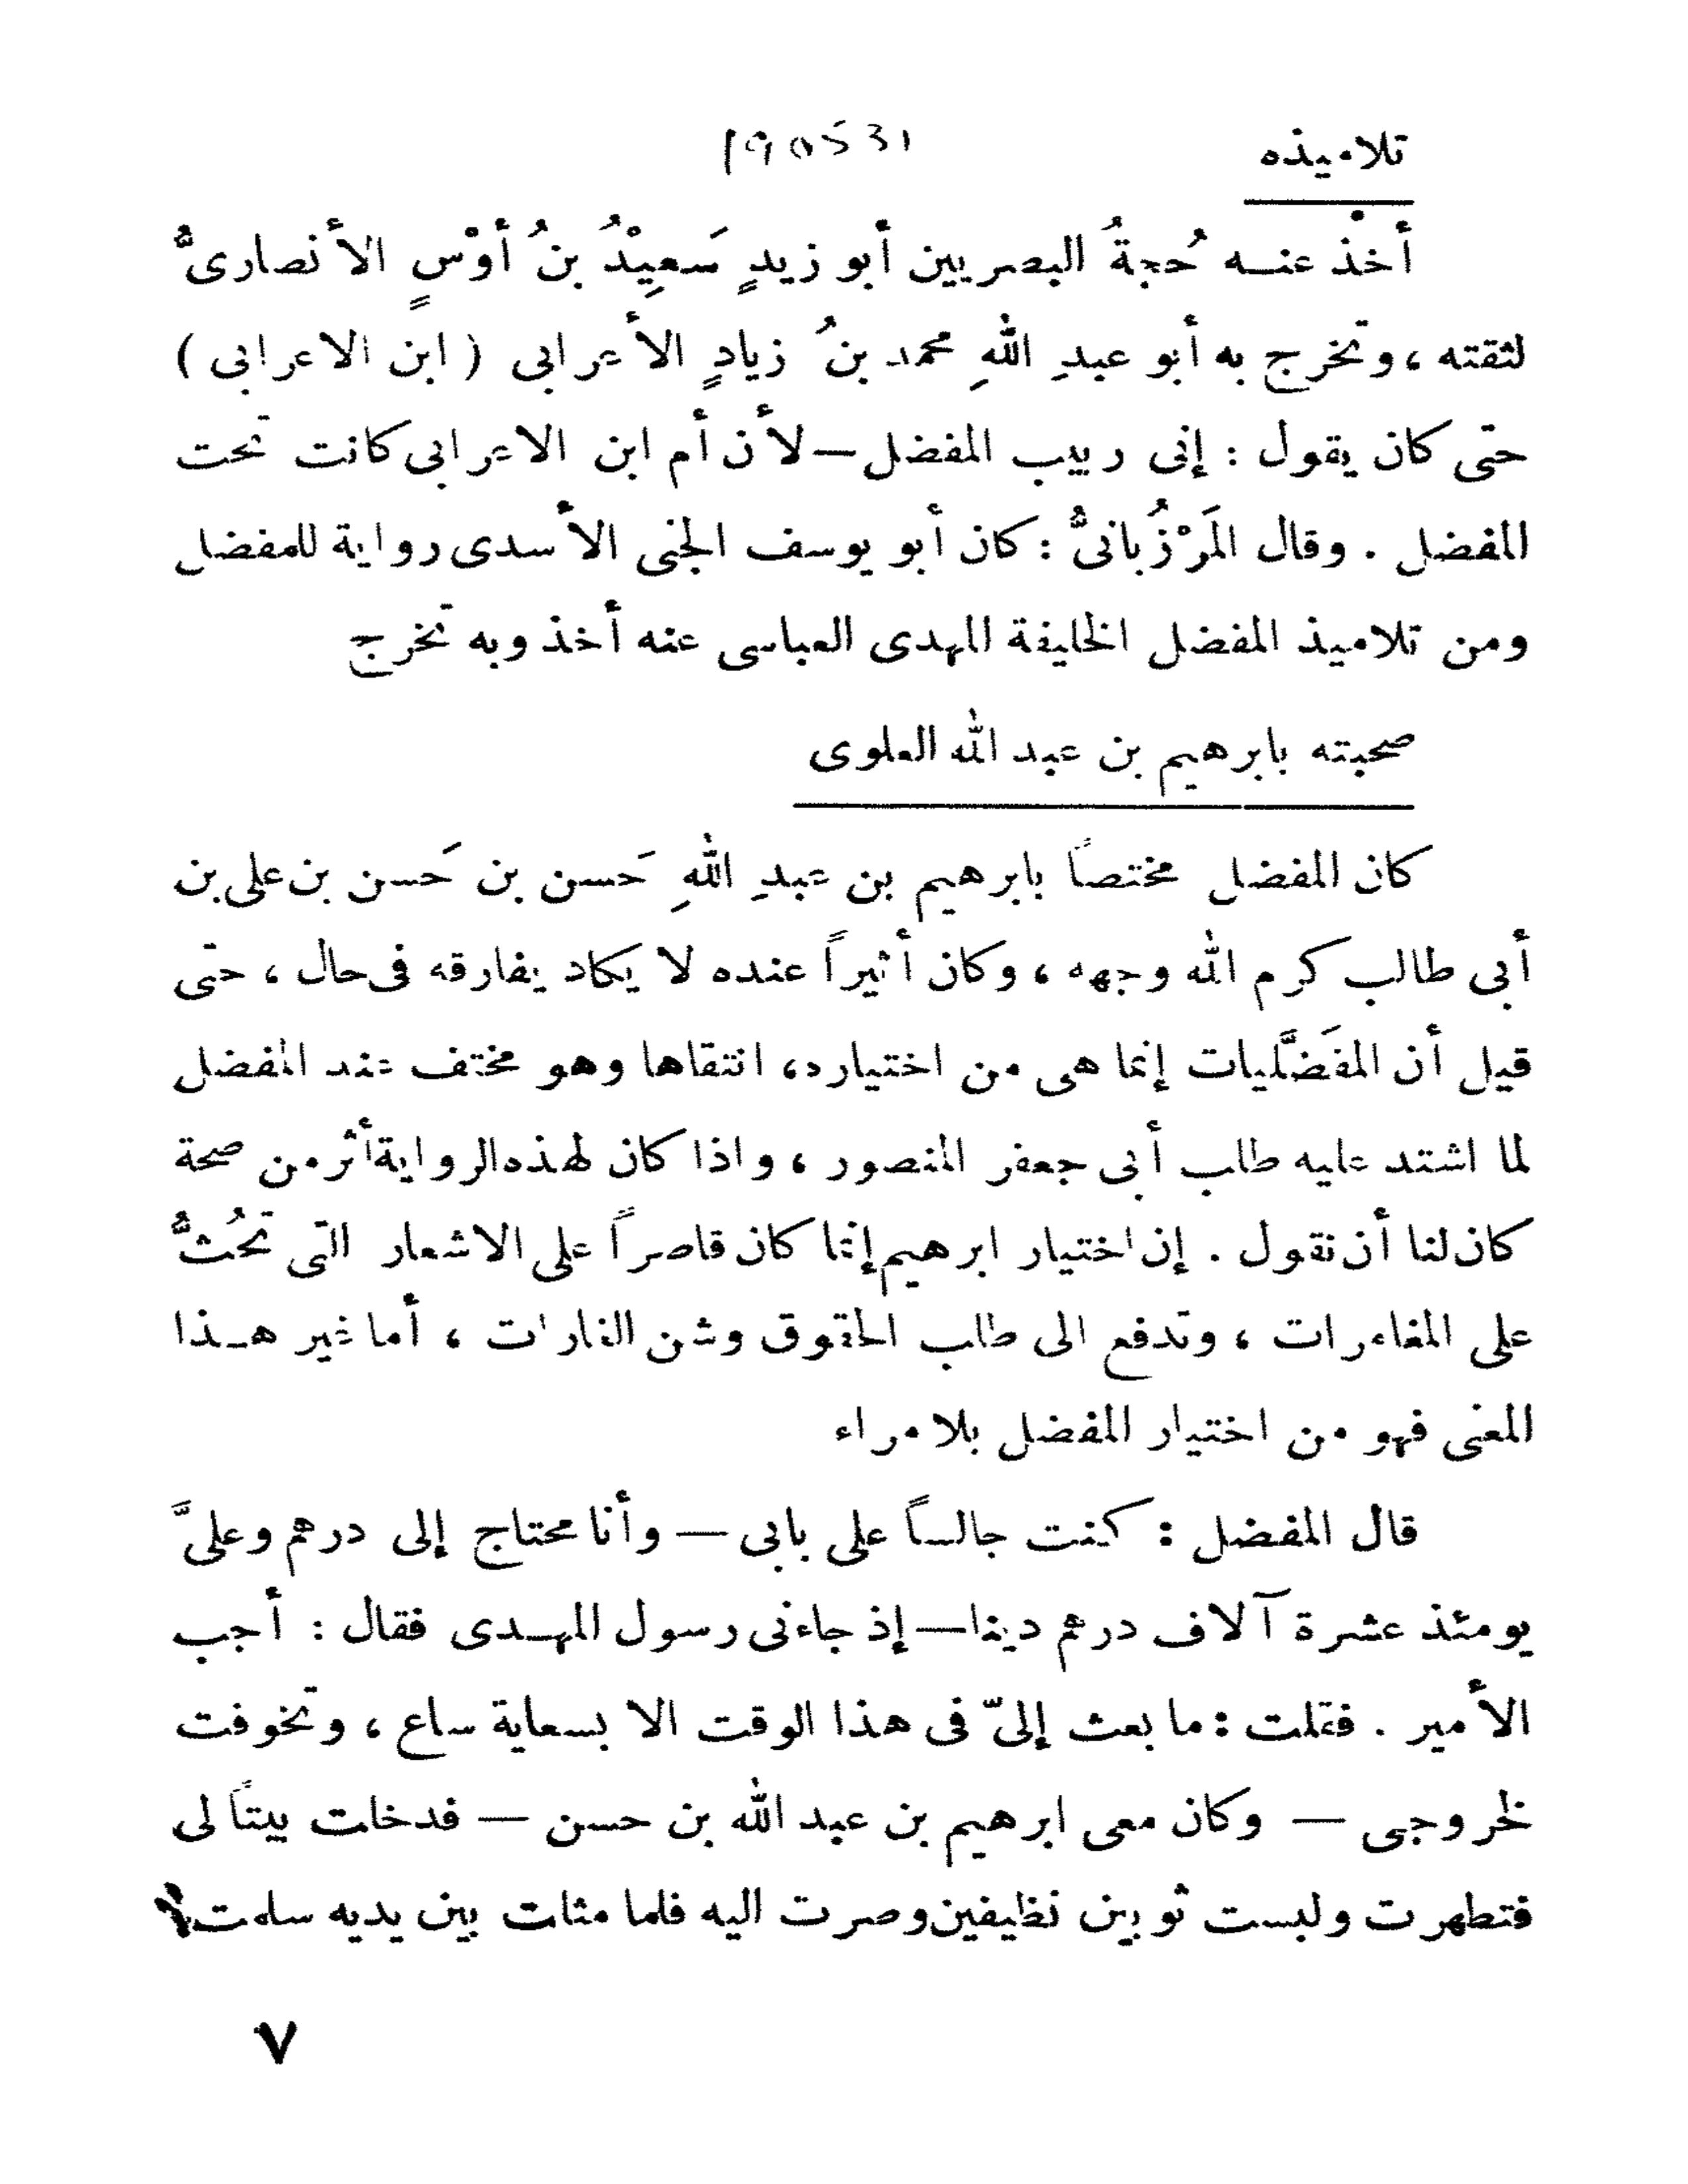 تلاميذه
190531
أخذْ عنه حُجةُ البصريين أبو زيدٍ سَعيِدْ بنُ أوْسٍ الأنصارىُّ
لثقته ، وتخرج به أبو عبدِ اللهِ محمد بنُ زيادٍ الأعرابى ( ابن الاعرابى )
حتى كان يقول : إنى ربيب المفضل — لأن أم ابن الاعرابى كانت تحت
المفضل . وقال المَرْزُبانىُّ : كان أبو يوسف الجنى الأسدى رواية للمفضل
ومن تلاميذ المفضل الخليفة المهدى العباسى عنه أخذ وبه تخرج
صحبته بابرهيم بن عبد الله العلوى
كان المفضل مختصاً بابرهيم بن عبدِ اللهِ حَسن بن حَسن بن على بن
أبى طالب كرم الله وجهه ، وكان أثيراً عنده لا يكاد يفارقه فى حال ، حتى
قيل أن المفَضَّليات إنما هى من اختياره، انتقاها وهو مختف عند المفضل
لما اشتد عليه طلب أبى جعفر المنصور ، واذا كان لهذه الرواية أثر من صحة
كان لنا أن نقول . إن اختيار ابرهيم إنما كان قاصراً على الاشعار التى تحُثُّ
على المغامرات ، وتدفع الى طلب الحقوق وشن الغارات ، أما غير هـذا
المعنى فهو من اختيار المفضل بلا مراء
قال المفضل : كنت جالساً على بابى — وأنا محتاج إلى درهم وعلىَّ
يومئذ عشرة آلاف درهم دينا — إذ جاءنى رسول المهدى فقال : أجب
الأمير . فقلت : ما بعث إلىّ فى هذا الوقت الا بسعاية ساع ، وتخوفت
لخروجى — وكان معى ابرهيم بن عبد الله بن حسن — فدخلت بيتاً لى
فتطهرت ولبست ثوبين نظيفين وصرت اليه فلما مثلت بين يديه سلمت
٧